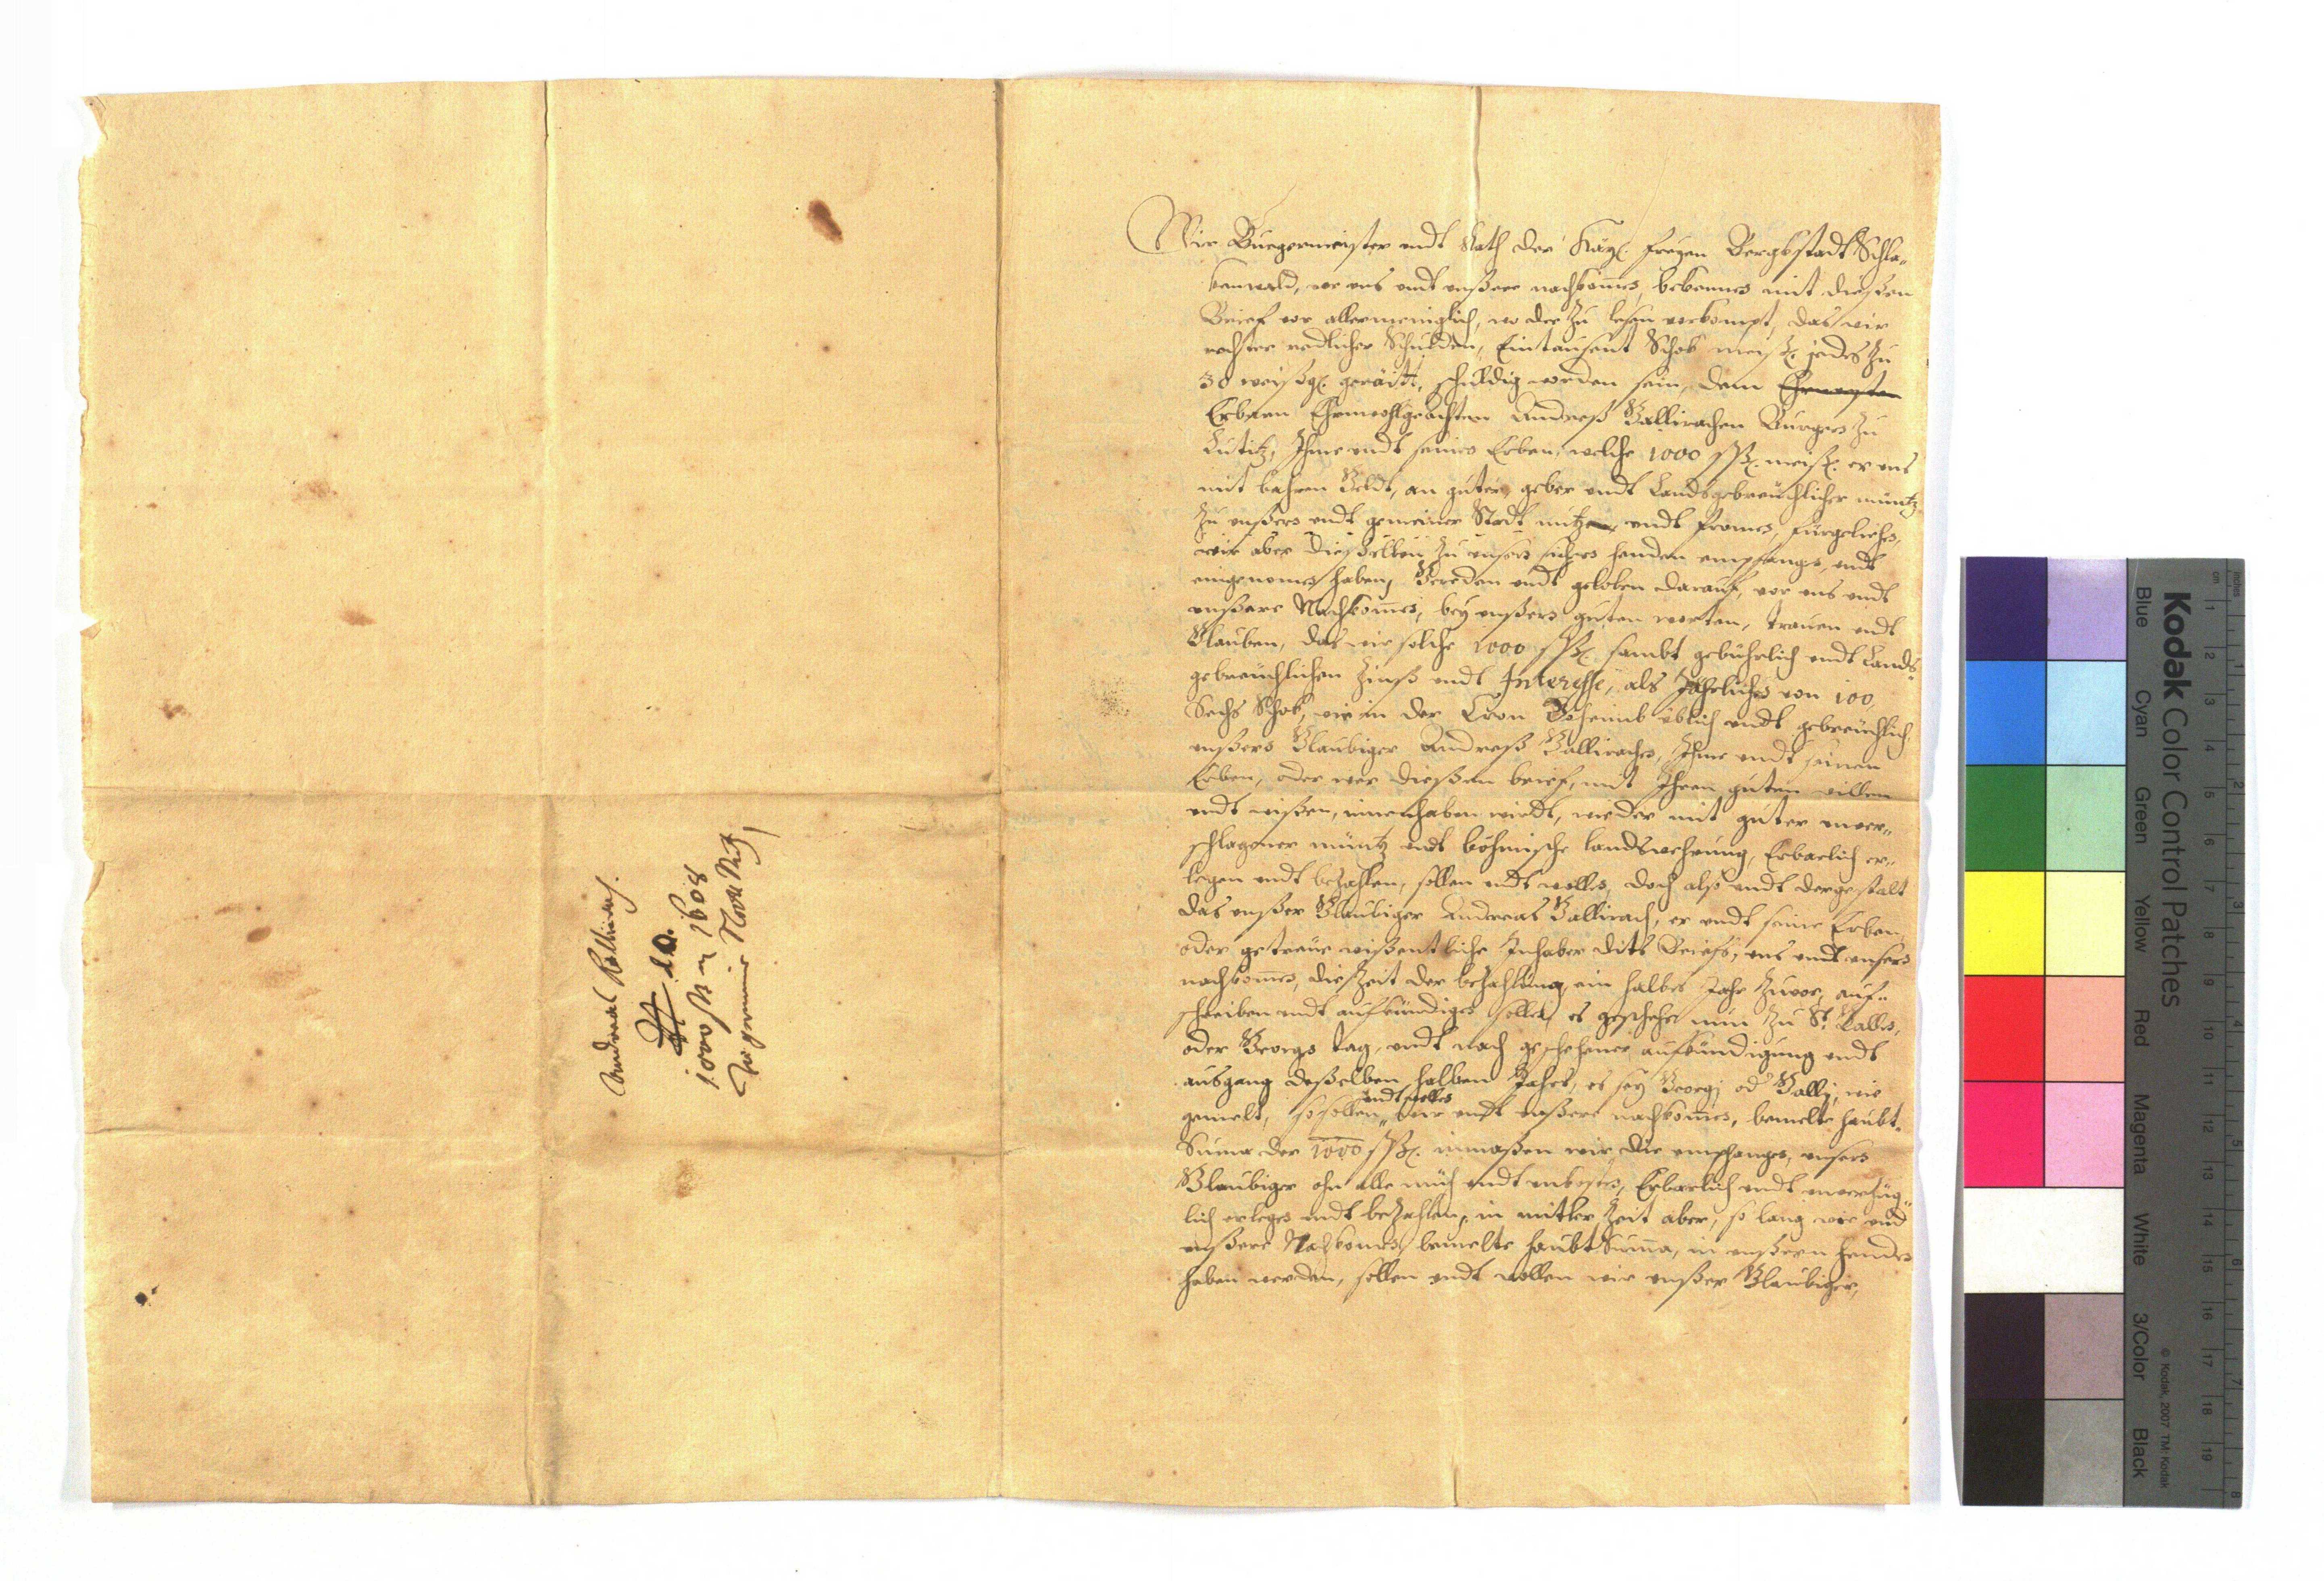 Wir Burgermeister undt Rath der Kay: freyen Bergkstadt Schla-
kenwald, vor uns undt unßere nachkom̄en, bekennen mit dießen
Brief vor allermeniglich, wo der zu lesen vorkompt, das wir
rechter redlicher Schulden, Eintausent Schok meiß: jedes zu
30 weißgr: geraitt, schuldig worden sein, dem
Erbarn Ehrnwohlgeachten Andreß Ballirachen Burgers zu
Lutitz, Ihme undt seinen Erben, welche 1000 ßß: meiß: er uns
mit bahren Geldt, an guter, geber undt Landsgebreuchlicher müntz
zu unßern undt gemeiner Stadt nutz undt fromen, fürgeliehen,
wir aber dießelben zu unsern sichern handen empfangen, undt
eingenomen haben, Gereden undt geloben darauf, vor uns undt
unßere Nachkom̄en, bey unßern guten worten, trauen undt
Glauben, das wir solche 1000 ßß: sambt gebührlich undt Lands-
gebreuchlichen Zinß undt Interesse, als Jährlichen von 100
Sechs Schok, wie in der Cron Böheimb üblich undt gebreuchlich
unßern Glaubiger Andreß Ballirachen, Ihme undt seinen
Erben, oder wer dießen brief, mit Ihren guten willen
undt wißen, innenhaben wirdt, wieder mit guter unver-
schlagener müntz undt böhmische landswehrung, Erbarlich er-
legen undt bezahlen, sollen undt wollen, doch also undt dergestalt
das unßer Glaubiger Andreas Ballirach, er undt seine Erben
oder getreue wißentliche Inhaber dits Briefs, uns undt unsern
nachkom̄en, die Zeit der bezahlung, ein halbes Jahr zuvor, auf-
schreiben undt aufkündigen sollen, es geschehe nun zu St. Gallen,
oder Georgs tag, undt nach geschehener aufkündigung undt
ausgang deßelben halben Jahrs, es sey Georgj od Gallj, wie
undt wollen
gemelt, so sollen wir undt unßere nachkom̄en, bemelte haubt-
Suma der 1000 ßß: inmaßen wir die empfangen, unsern
Glaubiger ohn alle müh undt unkosten, Erbarlich undt unverzüg-
lich erlegen undt bezahlen, in mitler Zeit aber, so lang wir und
unßere Nachkomen, bemelte haubt Sum̄a, in unßern handen
haben werden, sollen undt wollen wir unßer Glaubiger,
Andreas Ballirach.
1000 ß m 1608